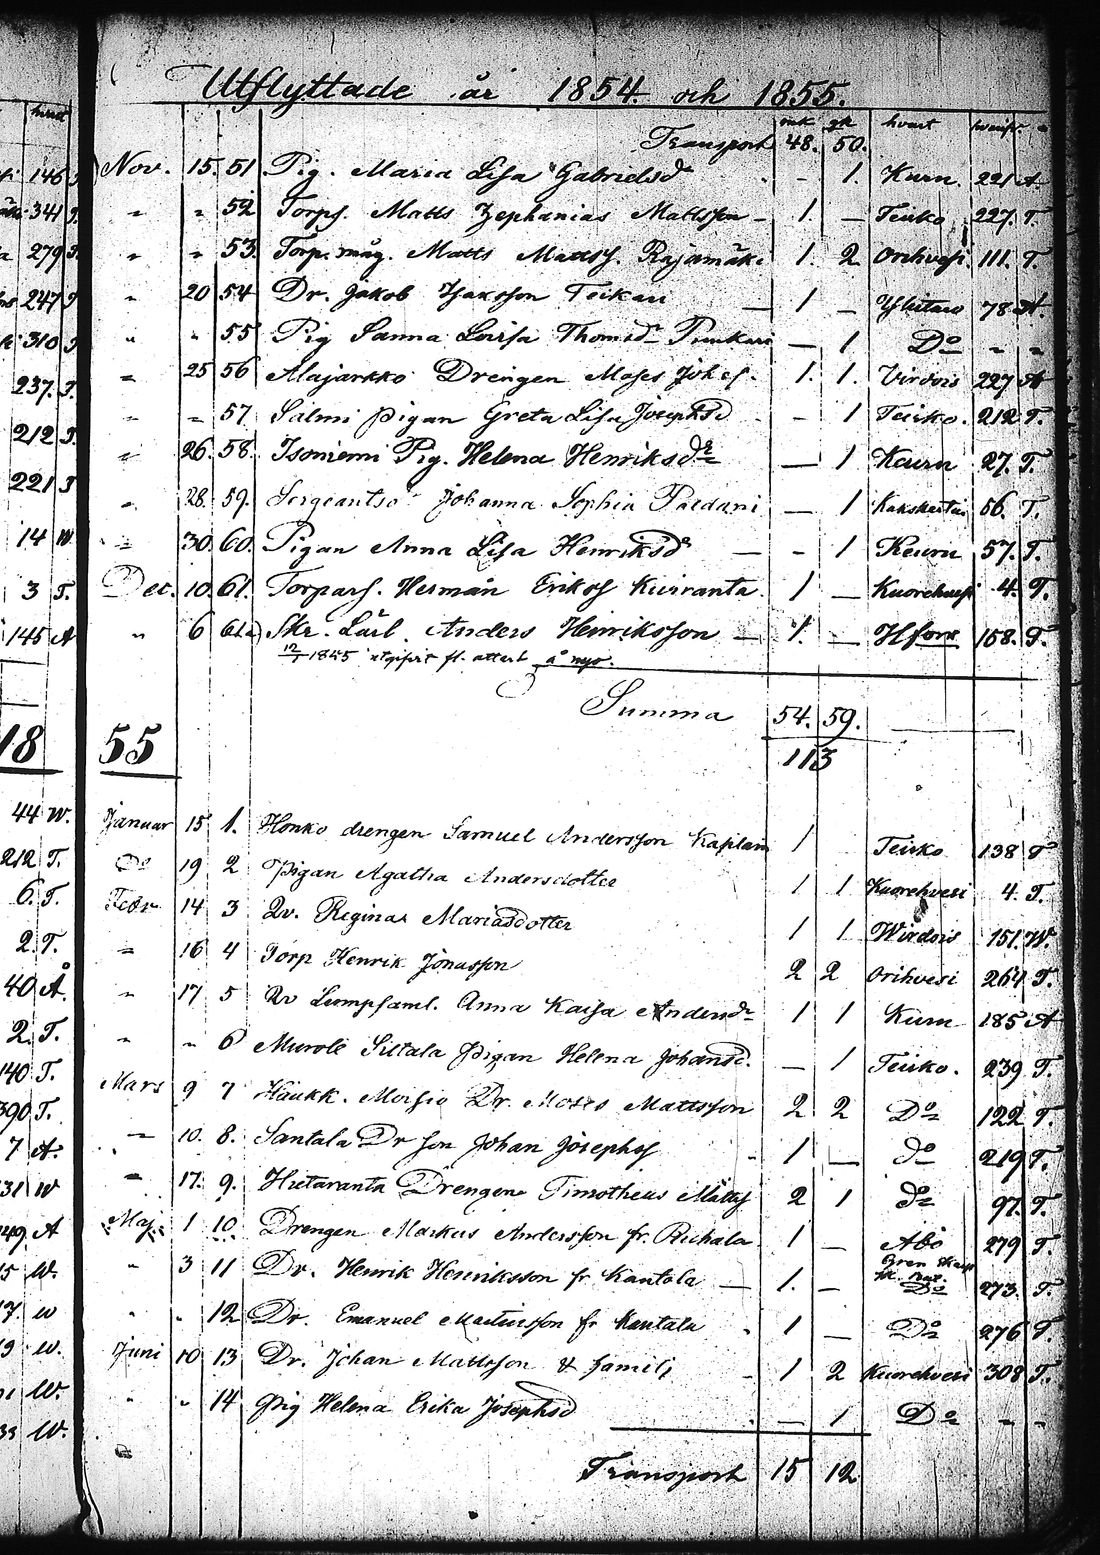 Utflyttade år 1854 och 1855.
hvart
Transport 48. 50.
146
Nov. 15. 51 Pig. Maria Lisa Gabrielsd - 1. Kuru. 221 A
341
" " 52 Torps. Matts Zephanias Mattsson - 1. — Teisko 227. T.
279
" " 53. Torp. måg. Matts Mattss. Rajamäki 1. 2 Orihvesi. 111. T.
247
" 20 54 Dr. Jakob Isaksson Teikari — 1 — 78 A.
310
" " 55 Pig Sanna Lovisa Thomsdr — 1 Do " "
237. T.
" 25 56 Alajarkko Drengen Moses Johss. 1. 1. Virdois 227 A
212 T.
" " 57. Salmi pigan Greta Lisa Josephsd - - 1 Teisko. 212 T.
221
" 26. 58. Isoniemi Pig. Helena Henriksdr — 1 Keuru 27. T.
14 W
" 28. 59. Johanna Sophia — 1 56. T.
" 30. 60. Pigan Anna Lisa Henriksd — - 1 Keuru 57. T.
3 T.
Dec. 10. 61. Torpars. Herman Eriks Kuiranta 1 — Kuorehvesi 4. T.
145 A
" 6 61a) Skr. Lärl. Anders Henriksson — 1. — Hfors 158. T.
12/1 1855 fl. attest å nyo.
Summa 54. 59.
113
18 55
44 W.
Januar 15 1. Honko drengen Samuel Andersson 1 Teisko 138 T
212 T.
Do 19 2 Pigan Agatha Andersdotter 1 1 Kuorehvesi 4. T.
6. T.
Febr 14 3 Qv. Regina Mariasdotter 1 1 Wirdois 151. W.
2. T.
" 16 4 Torp Henrik Jonasson 2 2 Orihvesi 264 T.
40 Å.
" 17 5 Qv Anna Kaisa Andersdr 1 1 Kuru 185 A
2. T.
" " 6 Murole Siltala Pigan Helena Johansd. — 1 Teisko. 239 T.
140 T.
Mars 9 7 Haukk. Moisio Dr. Moses Mattsson 2 2 Do 122 T.
390 T.
" 10. 8. Santala Dr son Johan Josephss - 1 — do 219 T.
7 A.
" 17. 9. Hietaranta Drengen Timotheus Mattss 2 1 do 97. T.
31 W
Maj 1 10. Drengen Markus Andersson fr. Ruhala 1 — Åbo 279 T.
Gren
" 3 11 Dr. Henrik Henriksson fr Kantola — 1. — Do 273. T.
" " 12 Dr. Emanuel fr Kantola . 1 — Do 276 T.
Juni 10 13 Dr. Johan Mattsson & familj - 1 2 Kuorehvesi 308 T.
" " 14 Pig Helena Erika Josephsd — 1 Do " "
Transport 15 12